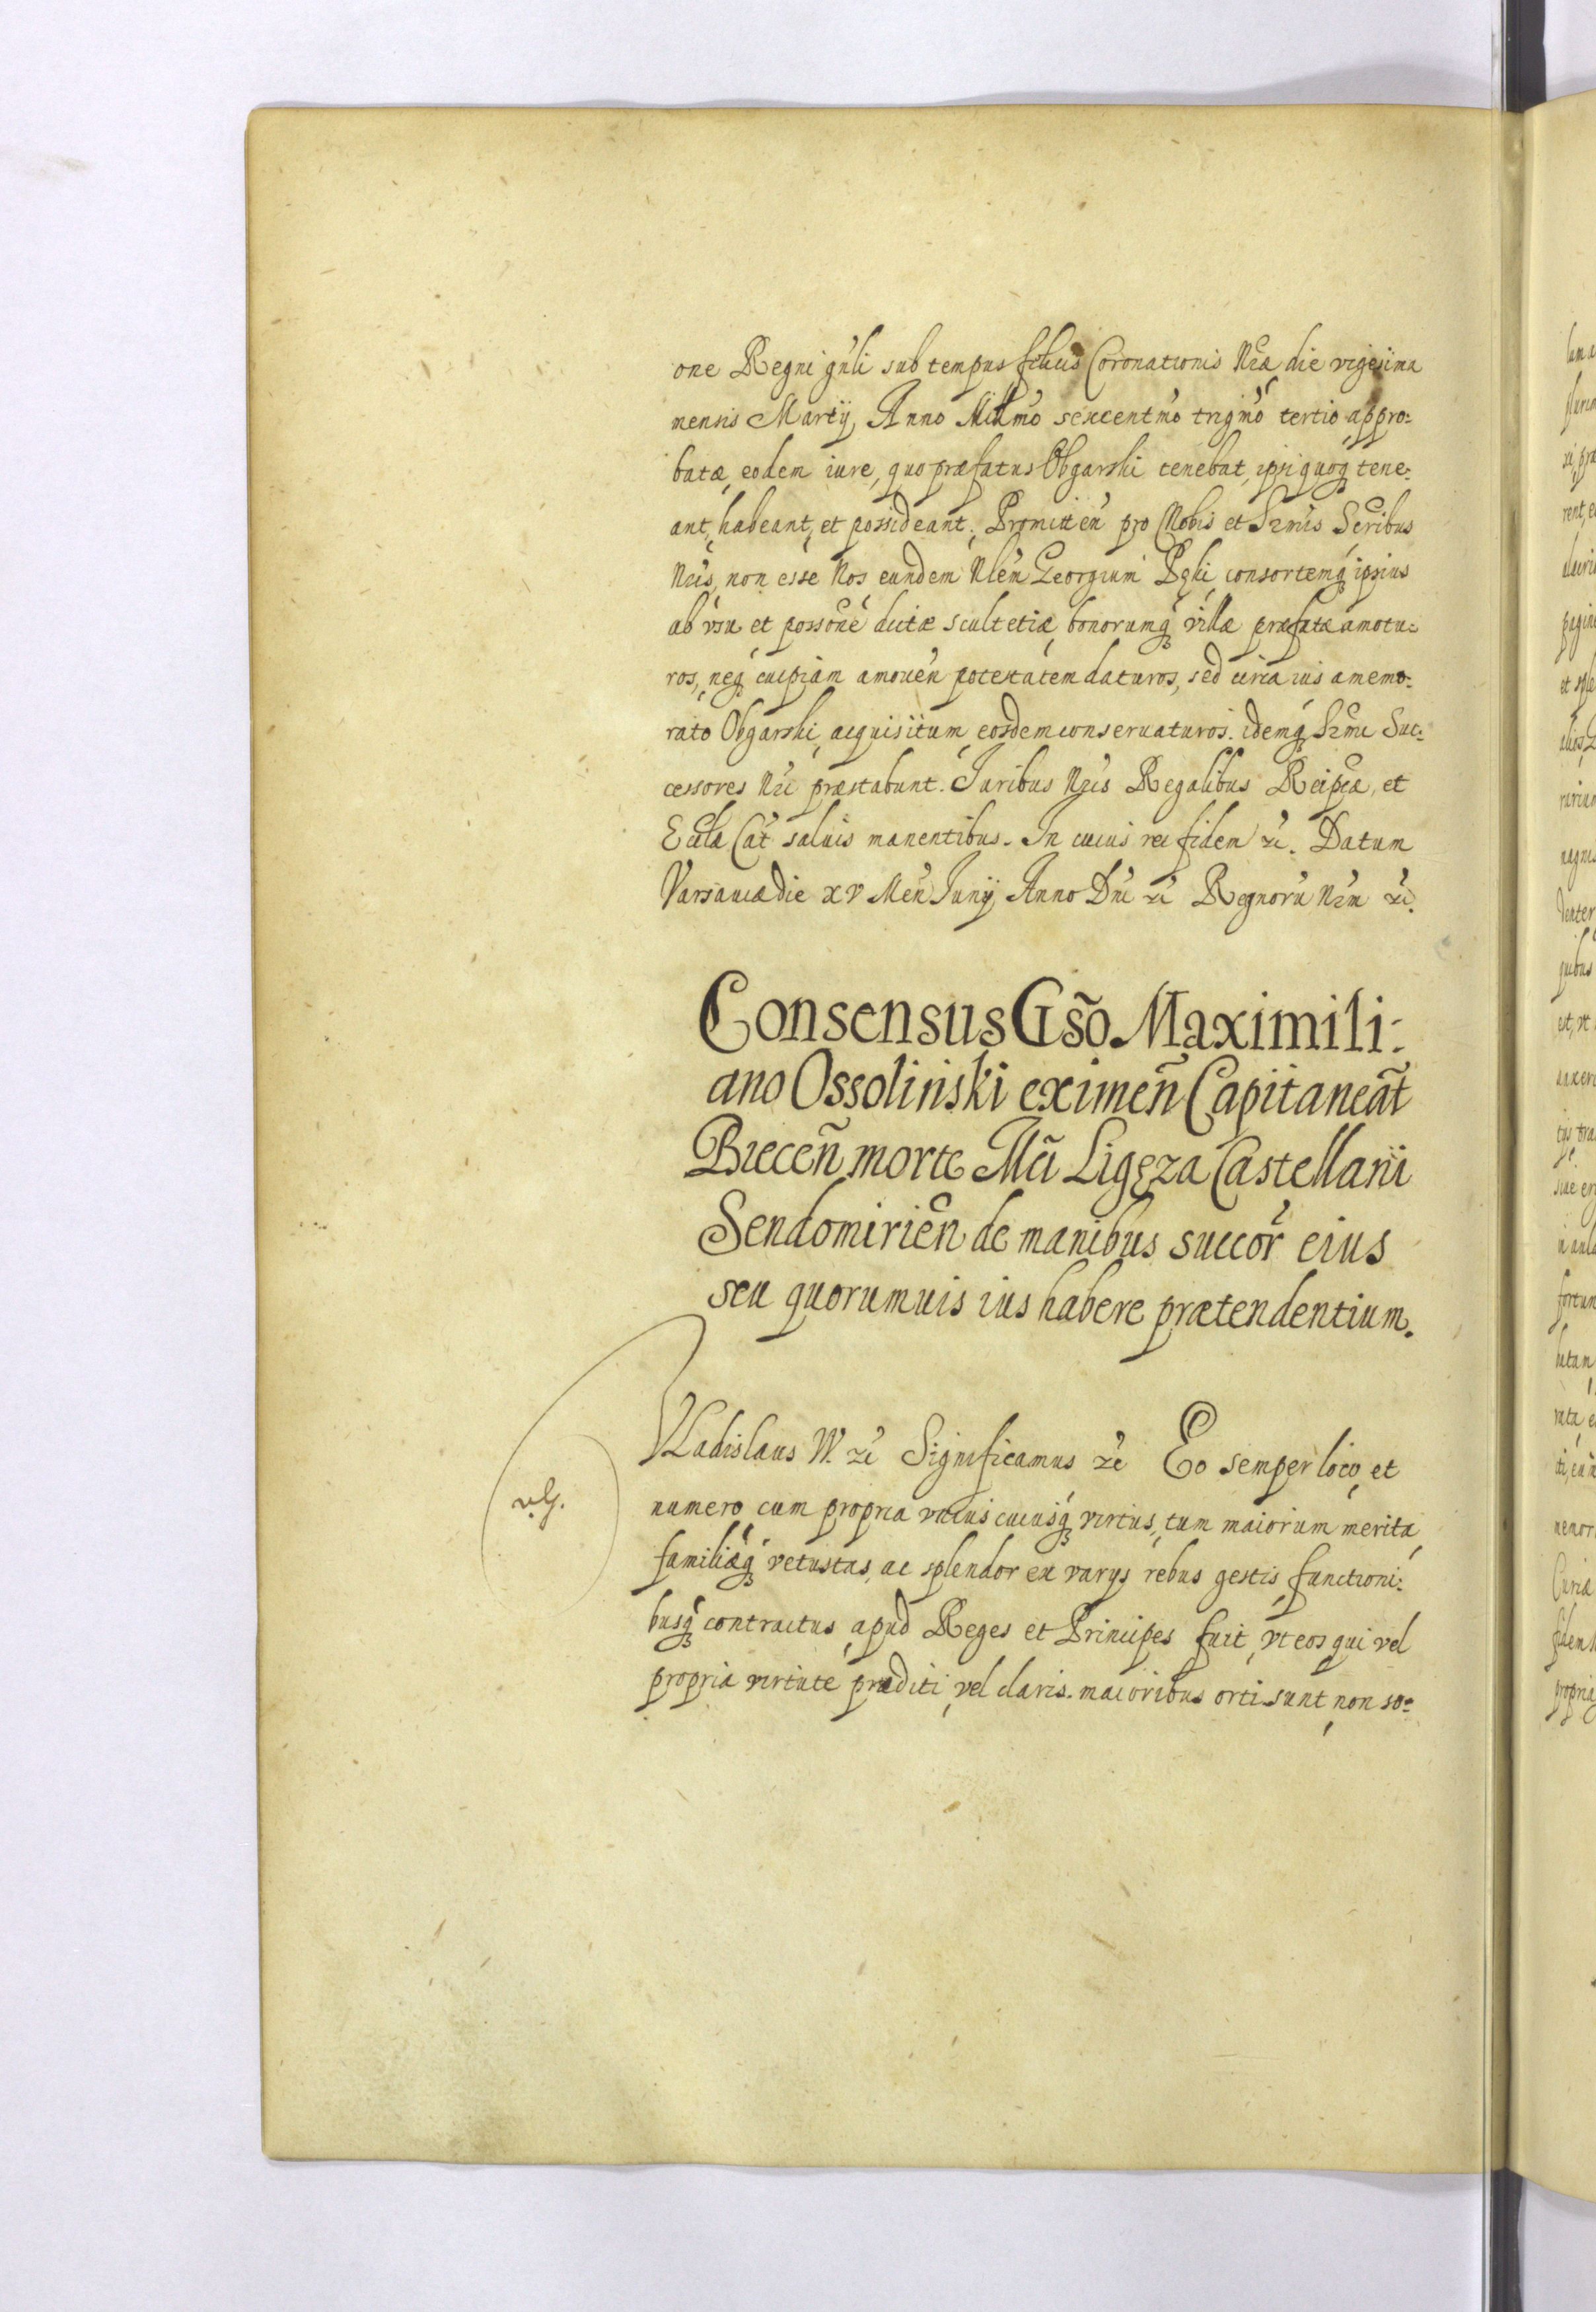 one Regni gñli sub tempus felicis Coronationis Nræ die vigesima
mensis Martij Anno Millmo sexcentmo trigmo tertio appro:
batæ, eodem iure, quo præfatus Obgarski tenebat, ipsi quoq tene:
ant, habeant, et possideant. Promitten pro Nobis et Srmis Seribus
Nris, non esse Nos eundem Nlem Georgium consortemq ipsius
ab vsu et possone dictæ scultetiæ, bonorumq villæ præfatæ amotu:
ros, neq cuipiam amouen potestatem daturos, sed circa ius a memo:
rato Obgarski acquisitum eosdem conseruaturos. idemq Srmi Suc:
cessores Nri præstabunt. Iuribus Nris Regalibus Reipcæ, et
Ecclæ Cat saluis manentibus. In cuius rei fidem &c. Datum
Varsauiæ die XV Men Iunij Anno Dni &c Regnoru Nrm &c.
Consensus Gso Maximili:
ano Ossoliński eximen Capitaneat
Biecen morte Mci Ligęza Castellani
Sendomirien de manibus succor eius
seu quorumuis ius habere prætendentium.
Vladislaus IV. &c Significamus &c Eo semper loco, et
numero cum propria vnius cuiusq virtus, tum maiorum merita
familiæq vetustas, ac splendor ex varijs rebus gestis, functioni:
busq contractus apud Reges et Principes fuit, vt eos qui vel
propria virtute præditi, vel claris maioribus orti sunt, non so: